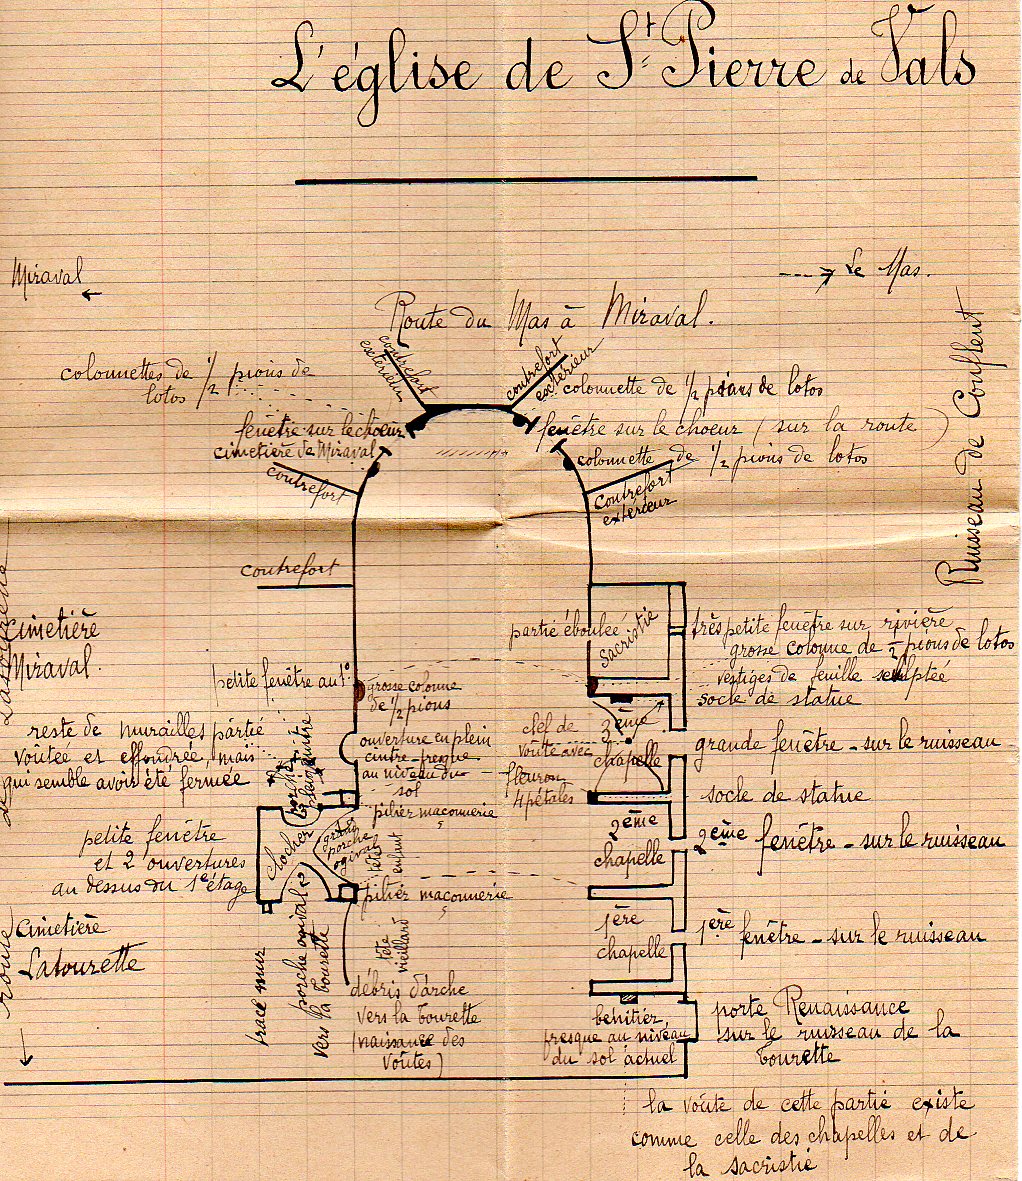 L'église de St Pierre de Vals
Miraval
Le Mas.
Route du Mas à Miraval.
Ruisseau de Couflent
contrefort
extérieur
contrefort
extérieur
colonnettes de 1/2 pions de
lotos
colonnette de 1/2 pions de lotos
fenêtre sur le choeur
cimetière de Miraval
fenêtre sur le choeur (sur la route)
colonnette de 1/2 pions de lotos
contrefort
contrefort
extérieur
contrefort
Cimetière
Miraval.
partie éboulée
Sacristie
très petite fenêtre sur rivière
grosse colonne de 1/2 pions de lotos
vestiges de feuille sculptée
socle de statue
petite fenêtre au 1°
grosse colonne
de 1/2 pions
reste de murailles partie
voûtée et effondrée, mais
qui semble avoir été fermée
porche
plein cintre
ouverture en plein
cintre presque
au niveau du
sol
clef de
voute avec
fleuron
4 pétales
3ème
chapelle
grande fenêtre - sur le ruisseau
socle de statue
pilier maçonnerie
petite fenêtre
et 2 ouvertures
au dessus du 1er étage
clocher
grand
porche
ogival
tête
enfant
2ème
chapelle
2ème fenêtre - sur le ruisseau
pilier maçonnerie
Cimetière
Latourette
route
trace mur
porche ogival
vers la Tourette
tête
vieillard
1ère
chapelle
1ère fenêtre - sur le ruisseau
débris d'arche
vers la Tourette
(naissance des
voûtes)
bénitier,
presque au niveau
du sol actuel
porte Renaissance
sur le ruisseau de la
Tourette
la voûte de cette partie existe
comme celle des chapelles et de
la sacristie